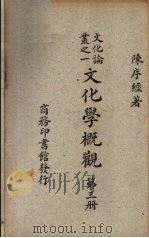 陳序經著
文化論
叢之一
文化學概觀
第三册
商務印書館發行